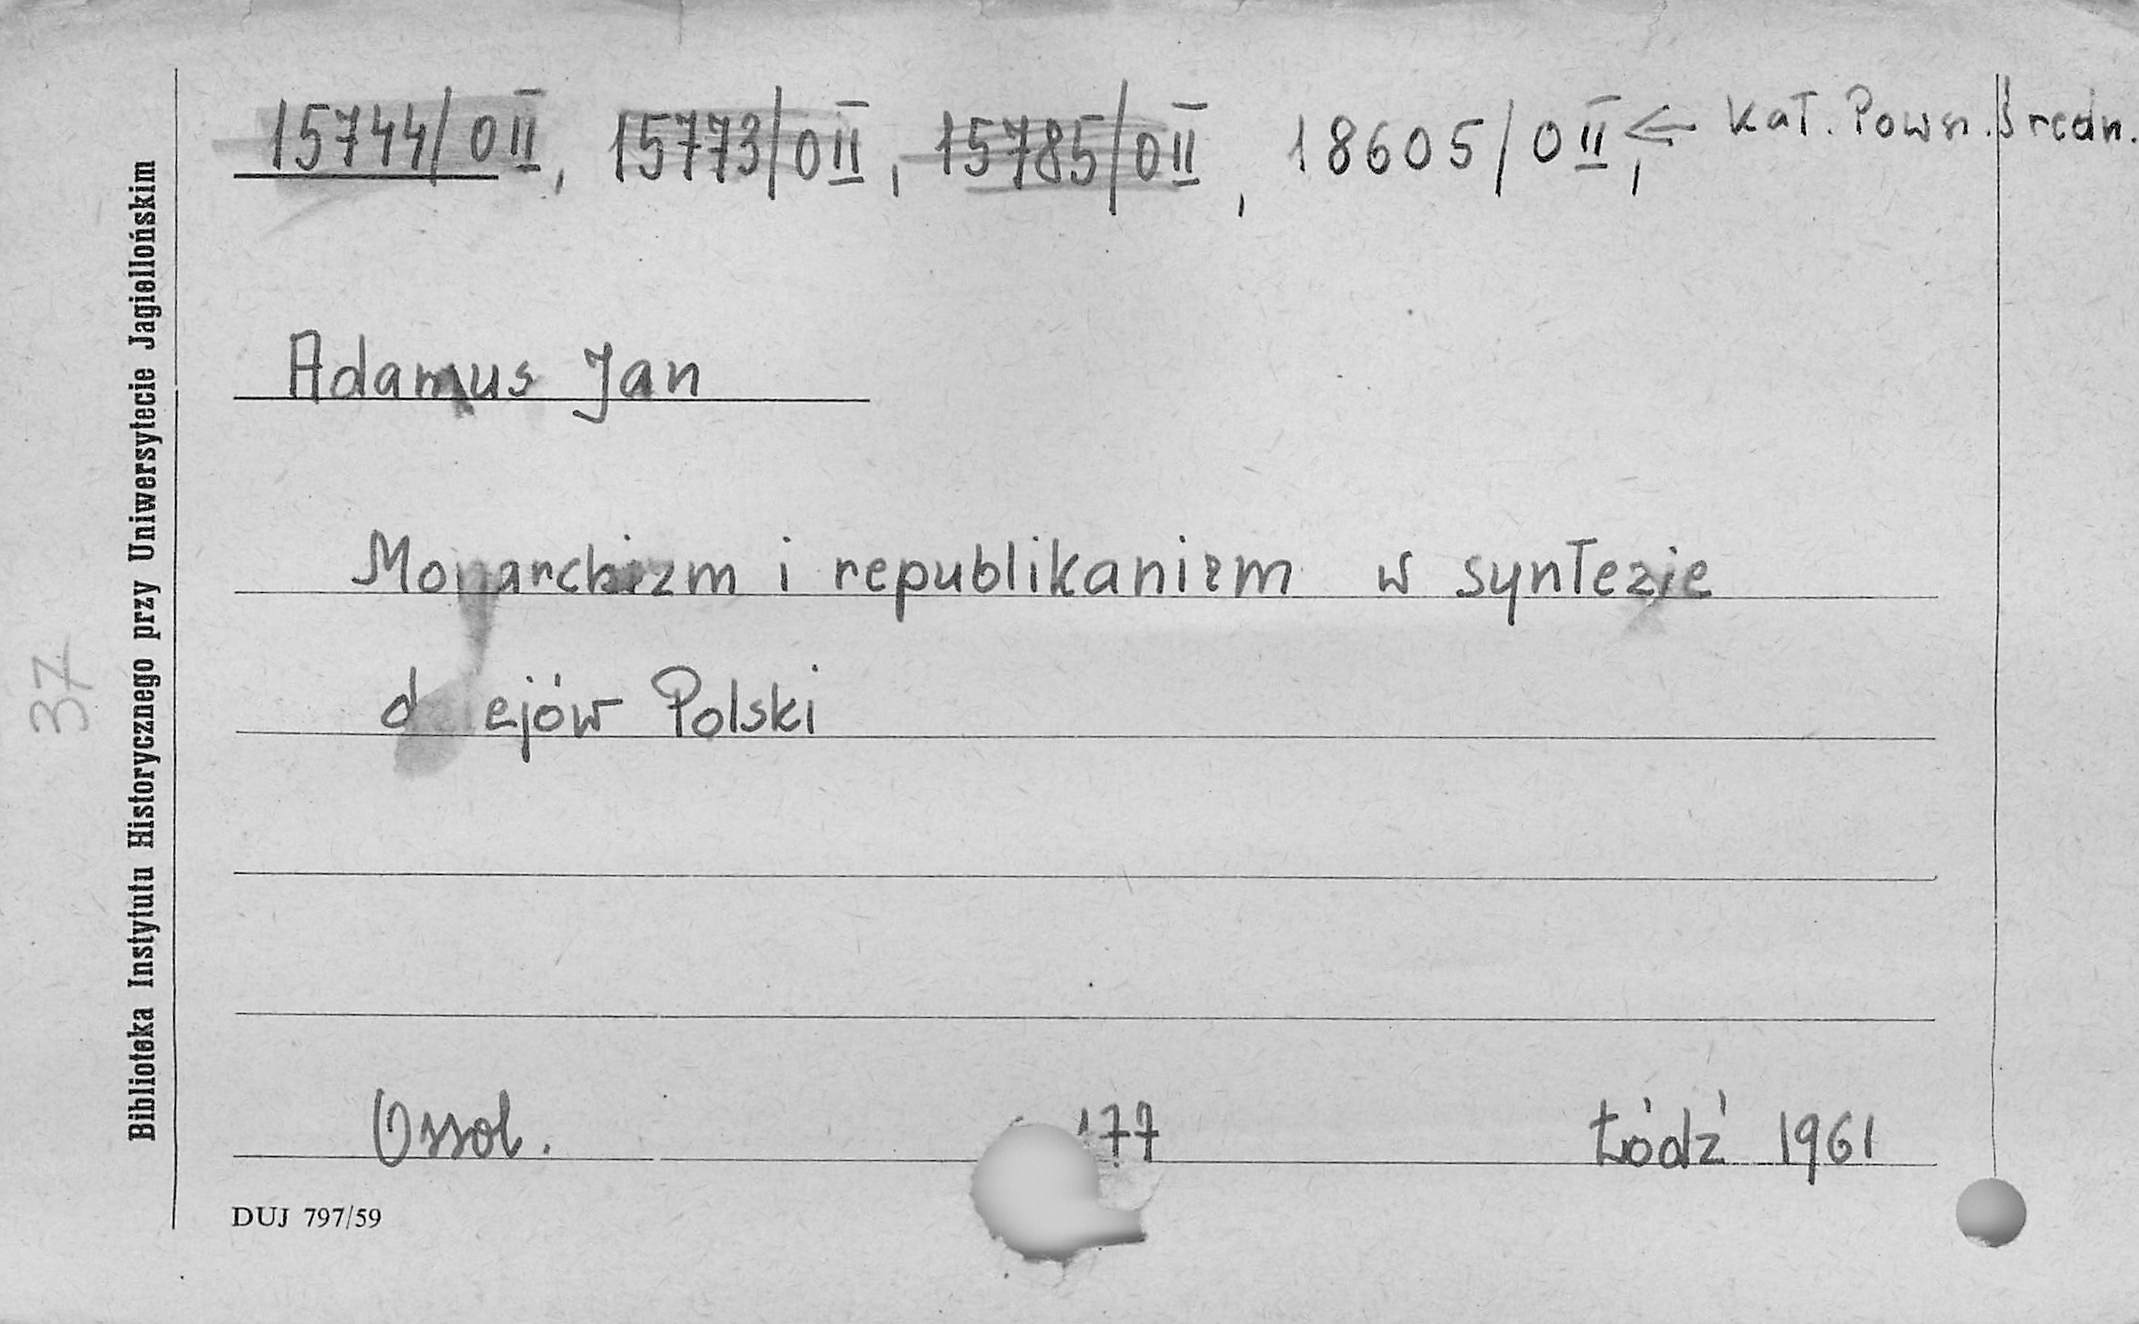 15744/0II, 15773/0II, 15785/0II, 18605/0II, ← Kat. Powsz. Średn.
Adamus Jan
Monarchizm i republikanizm w syntezie
dziejów Polski
Ossol. 177 Łódź 1961
DUJ 797/59
Biblioteka Instytutu Historycznego przy Uniwersytecie Jagiellońskim
37